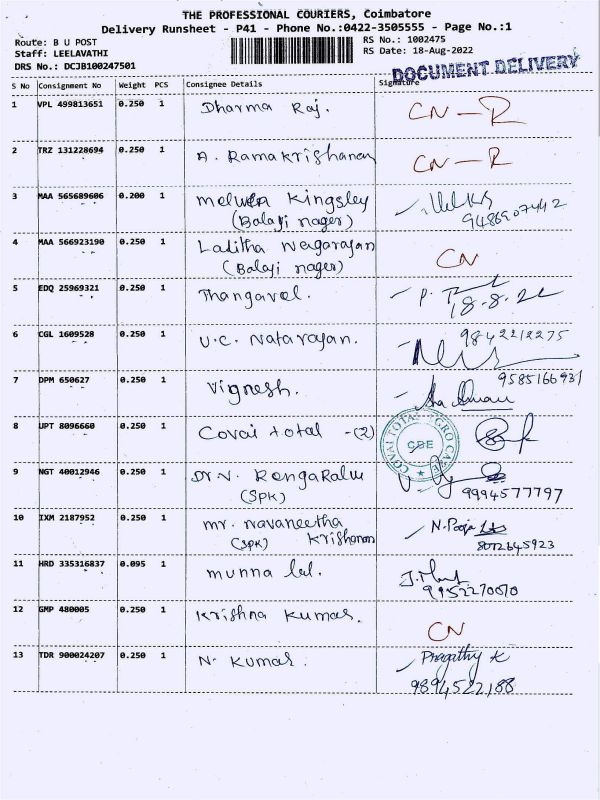 THE PROFESSIONAL COURIERS, Coimbatore
Delivery Runsheet - P41 - Phone No.:0422-3505555 - Page No.:1
Route: B U POST
RS No.: 1002475
Staff: LEELAVATHI
RS Date: 18-Aug-2022
DRS No.: DCJB100247501
DOCUMENT DELIVERY
S No Consignment No Weight PCS Consignee Details Signature
1 VPL 499813651 0.250 1 Dharma Raj. CN - R
2 TRZ 131228694 0.250 1 A. Ramakrishanan CN - R
3 MAA 565689606 0.200 1 Melwin Kingsley
(Balaji nager) 9486907442
4 MAA 566923190 0.250 1 Lalitha Nagarajan
(Balaji nager) CN
5 EDQ 25969321 0.250 1 Thangavel. P.
18-8-22
6 CGL 1609528 0.250 1 U.C. Natarajan. 9842212275
7 DPM 650627 0.250 1 Vignesh. 9585166931
8 UPT 8096660 0.250 1 Covai total -(2)
COVAI TOTAL AGRO CARE
CBE
9 NGT 40012946 0.250 1 Dr V. Rengaralu
(SPK) 9994577797
10 IXM 2187952 0.250 1 mr. navaneetha N. Pooja
(SPK) Krishanan 8072645923
11 HRD 335316837 0.095 1 munna lal.
9952270070
12 GMP 480005 0.250 1 Krishna Kumar. CN
13 TDR 900024207 0.250 1 N. Kumar. Pragathy K
9894522188